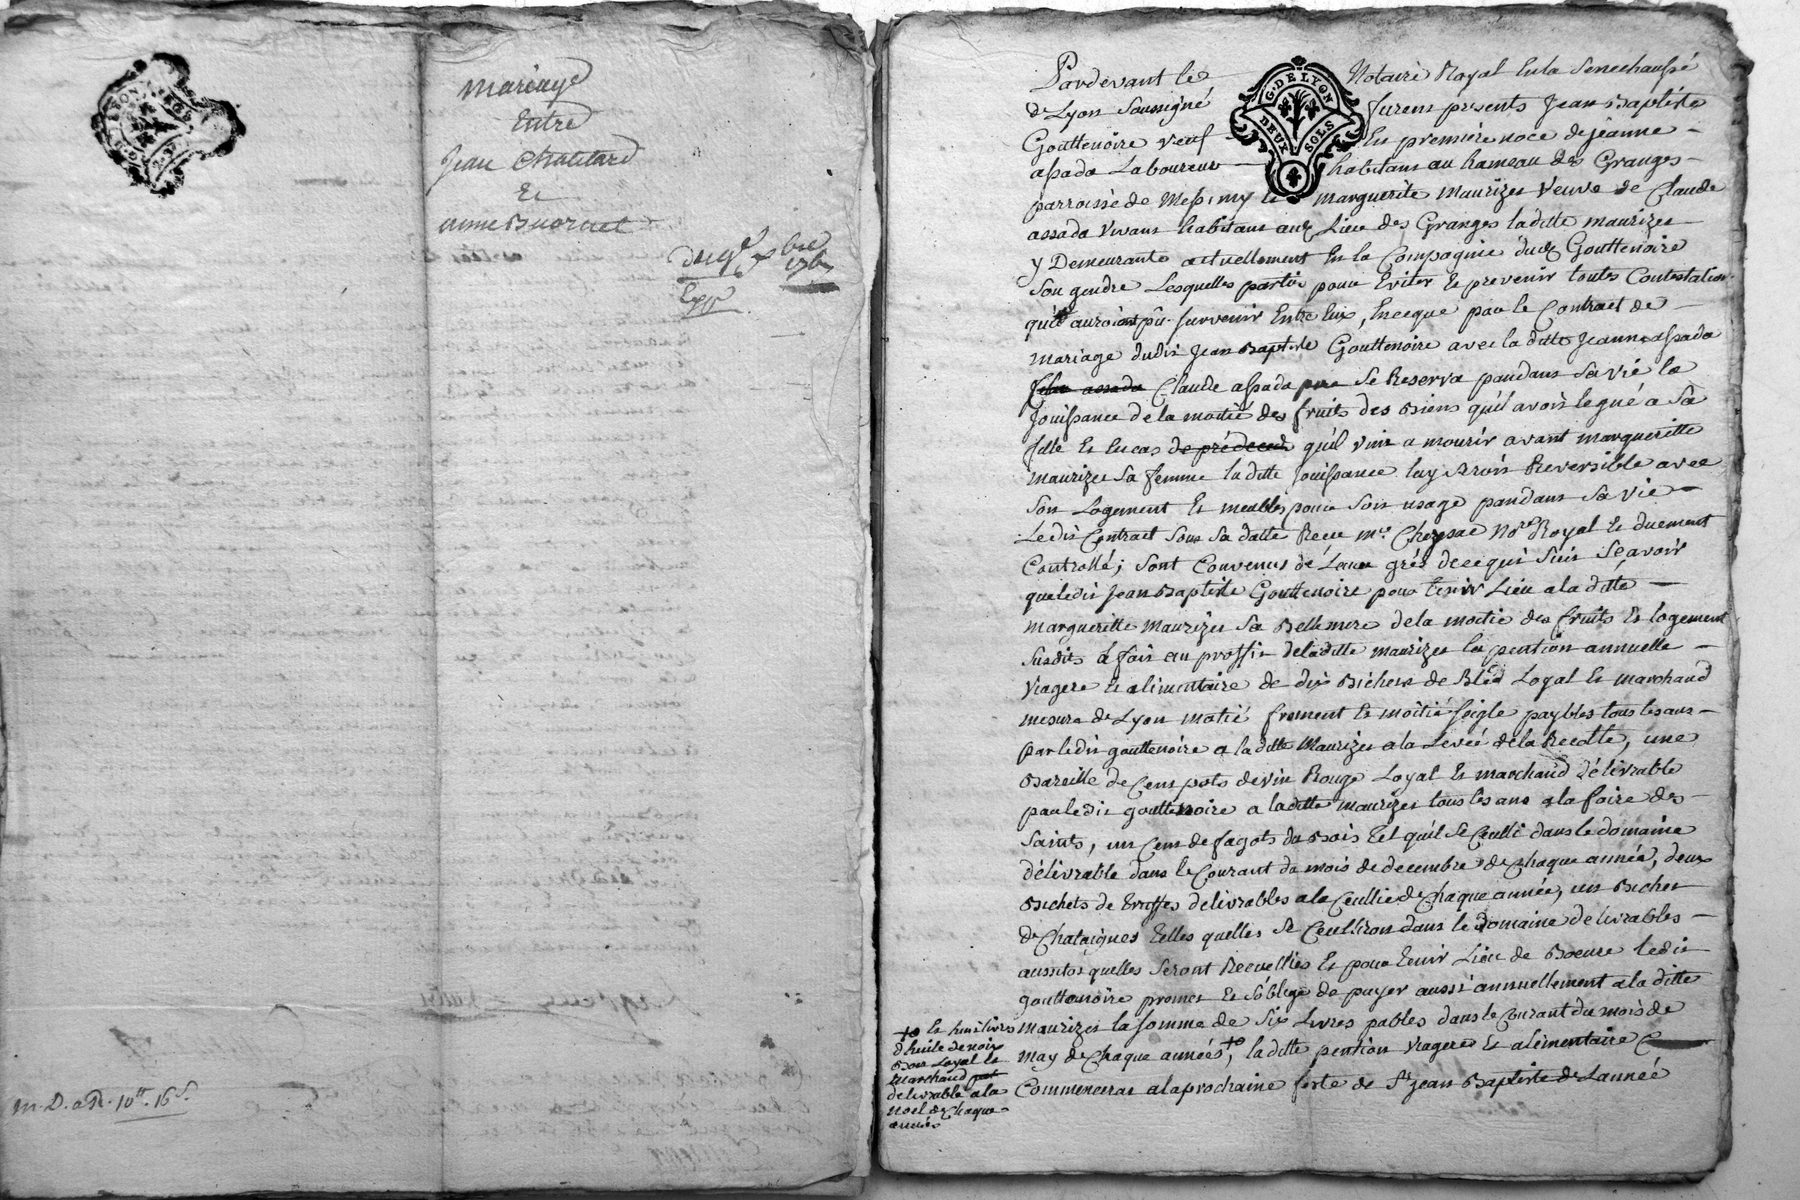 Mariage
Entre
Jean Chatelard
Et
anne
7bre
Exp
M. D. a R. 10tt. 16s.
G. DE LYON
DEUX SOLS
Pardevant le Notaire Royal En la Senechaussé
de Lyon Soussigné furent presents Jean Baptiste
Gouttenoire veuf En premiere noce de jeanne
assada Laboureur habitant au hameau des Granges
parroisse de Messimy Et marguerite maurizes veuve de Claude
assada vivant habitant aux Lieu des Granges laditte maurizes
y Demeurante actuellement En la Compagnie dudt Gouttenoire
Son gendre Lesquelles parties pour Eviter Et prevenir toutes Contestation
quil auroient pû survenir Entre Eux, Enceque par le Contract de
mariage dudit Jean Baptiste Gouttenoire avec la ditte Jeanne assada
assada Claude assada pere Se Reserva pandant Sa vie la
Jouissance de la moitié des fruits des Biens qu'il avoit legué a Sa
fille Et Encas de prédecede qu'il vint a mourir avant margueritte
maurizes Sa femme laditte Jouissance luy Seroit Reversible avec
Son Logement Et meubles pour Son usage pandant Sa vie
Ledit Contract Sous Sa datte Reçu me. Not.e Royal Et duement
Controllé; Sont Convenus de Leur gréz dece qui Suit Sçavoir
queledit Jean Baptiste Gouttenoire pour tenir Lieu a la ditte
marguerite maurizes Sa Bellemere dela moitié des fruits Et logement
Susdits a fait au proffit deladitte maurizes les pention annuelle
viagere Et alimentaire de dix Bichets de Bled Loyal Et marchand
mesure de Lyon moitié froment Et moitié seigle payables tous les ans
par ledit gouttenoire a laditte Maurizes a la Levée de la Recolte, une
Bareille de Cent pots de vin Rouge Loyal Et marchand délivrable
par ledit gouttenoire a laditte maurizes tous les ans a la foire des
Saints, un Cent de fagots du Bois tel qu'il Se Ceulli dans le domaine
délivrable dans le Courant du mois de decembre de Chaque année, deux
Bichets de truffes delivrables a la Ceullie de Chaque année, un Bichet
de Chataignes telles quelles Se Ceulliront dans le domaine delivrables
aussitot quelles Seront Recuellies Et pour tenir Lieu de Boeure ledit
gouttenoire promet Et S'oblige de payer aussi annuellement a la ditte
maurizes la Somme de Six Livres pables dans le Courant du mois de
may de Chaque années, la ditte pention viagere Et alimentaire
Commencerat a laprochaine fete de St jean Baptiste de Lanneé
Et huit livres
dhuile de noix
Bon Loyal Et
marchand
delivrable a la
noel de Chaque
année